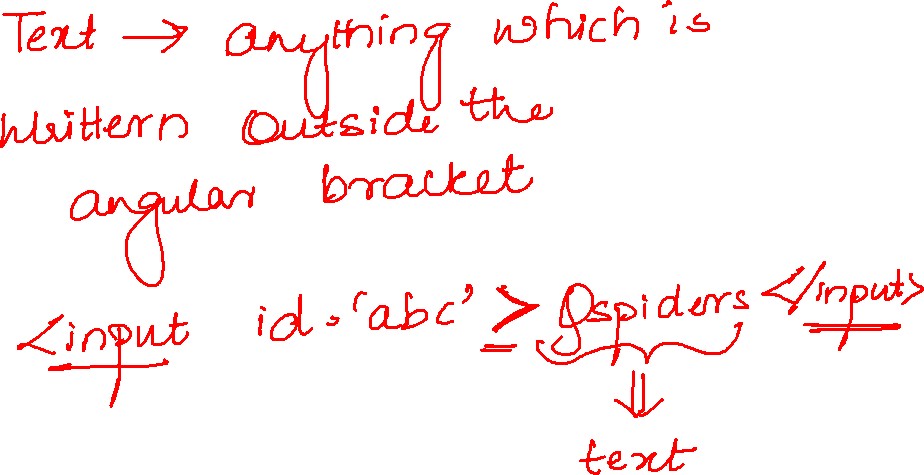 Text → anything which is
writtern outside the
angular bracket
<input id='abc'>Qspiders</input>
text